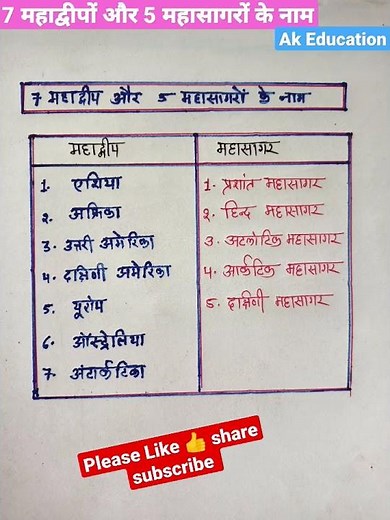 7 महाद्वीपों और 5 महासागरों के नाम
Ak Education
7 महाद्वीप और 5 महासागरों के नाम
महाद्वीप
1. एशिया
2. अफ्रिका
3. उत्तरी अमेरिका
4. दक्षिणी अमेरिका
5. यूरोप
6. ऑस्ट्रेलिया
7. अंटार्कटिका
महासागर
1. प्रशांत महासागर
2. हिन्द महासागर
3. अटलांटिक महासागर
4. आर्कटिक महासागर
5. दक्षिणी महासागर
Please Like 👍 share
subscribe